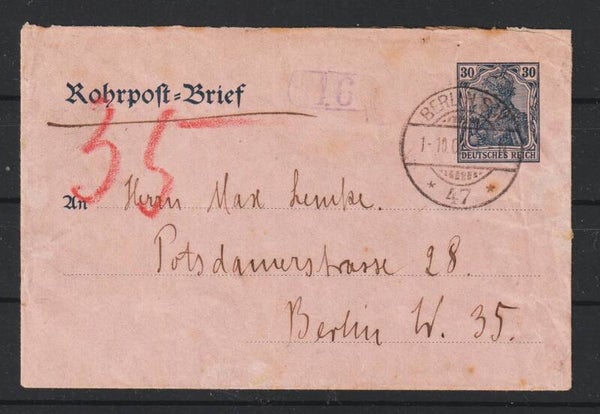 Rohrpost=Brief
IG
30 30
DEUTSCHES REICH
BERLIN S.W.
* 47 *
35
An Herrn Max Lemke.
Potsdamerstrasse 28.
Berlin W. 35.